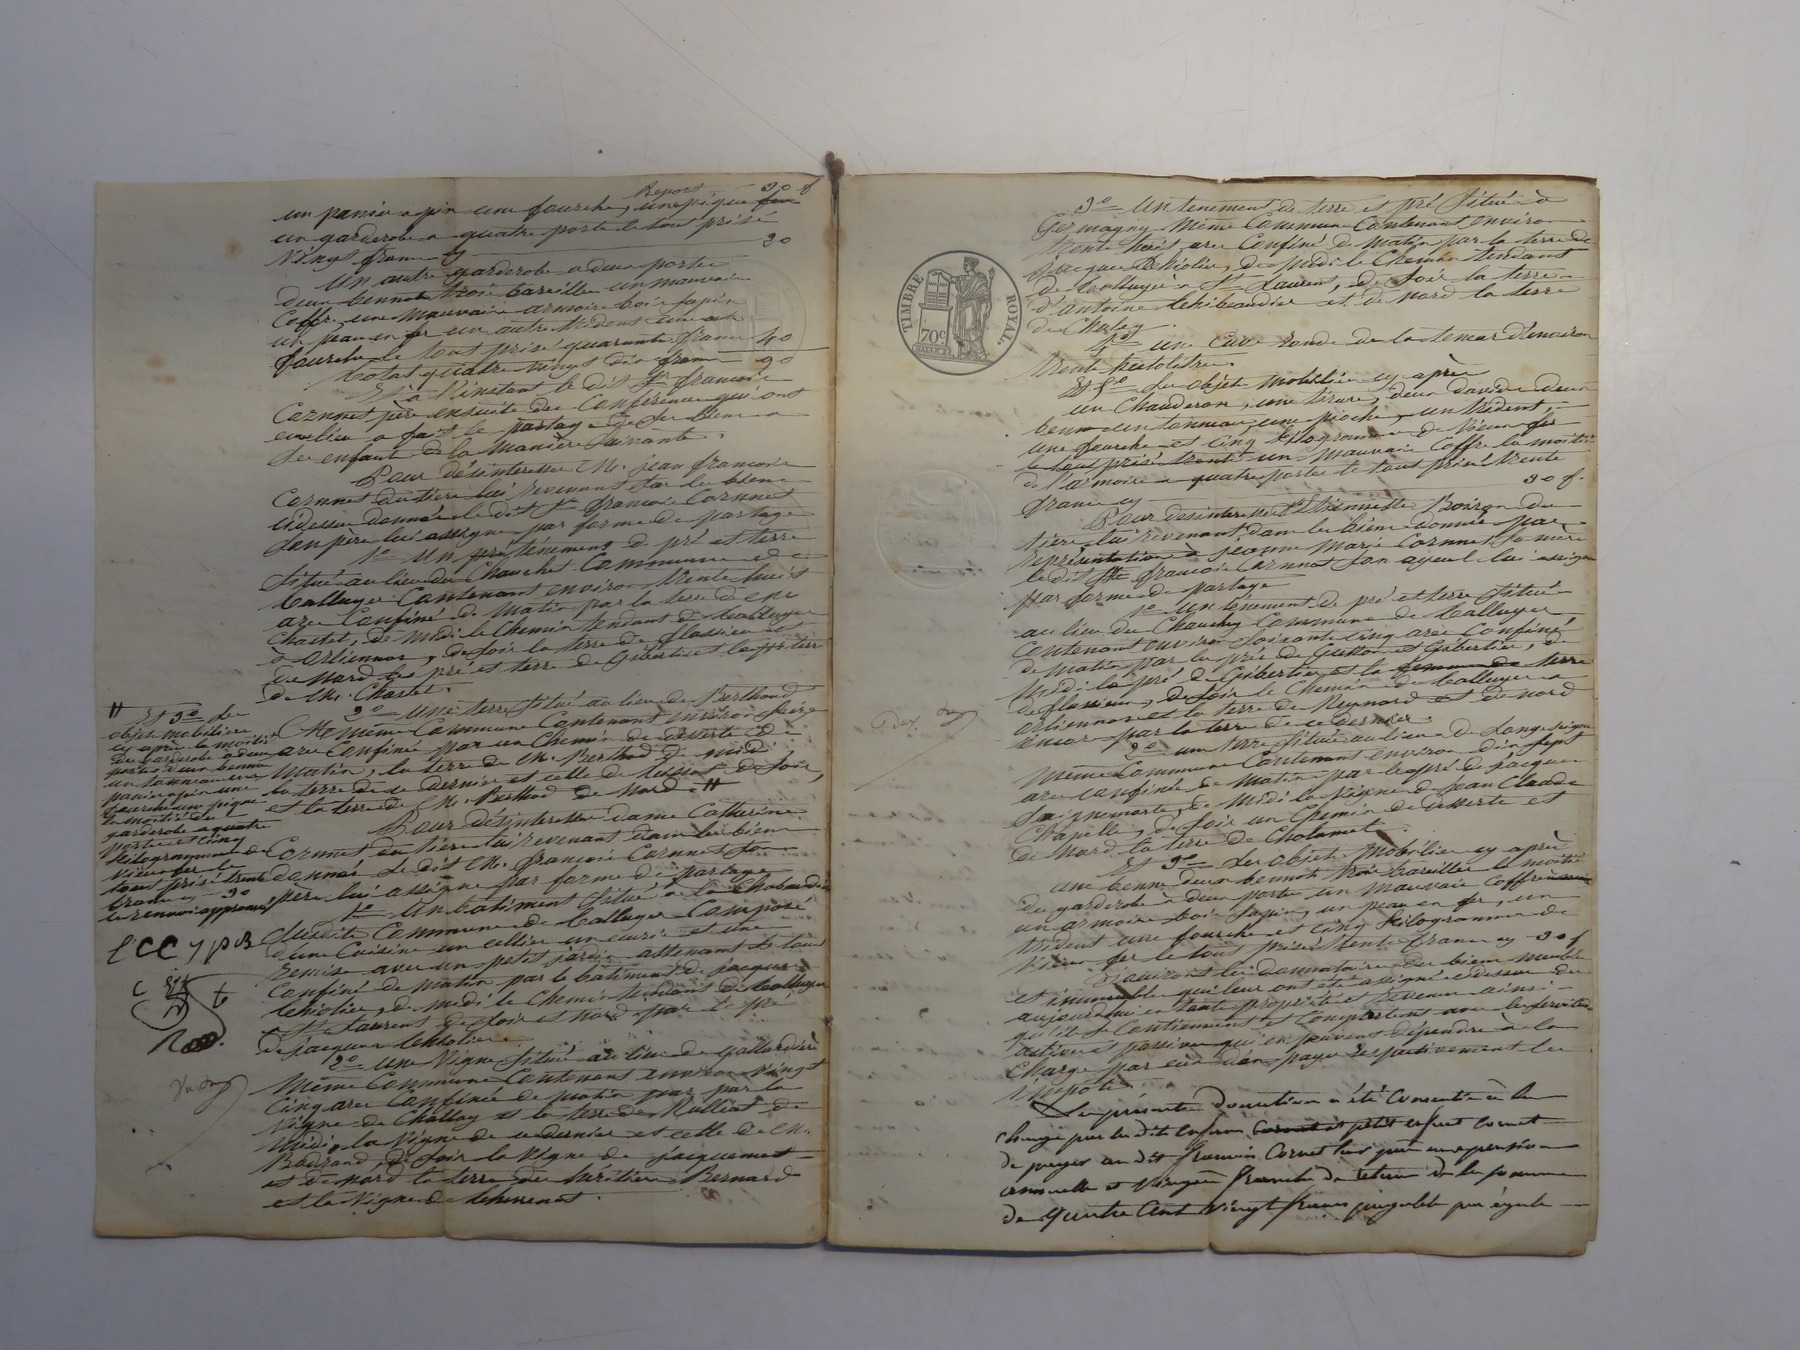 Report 30 f
un panier a pin une fourche, une pique
un garderobe a quatre porte le tout prisé
Vingt francs cy 20
Un autre garderobe a deux porte
deux bennot trois bareilles un mauvais
Coffre une mauvaise armoire bois sapin
un peau en fer un autre trident une
fourche le tout prisé quarante francs 40
Total quatre vingt dix francs 90
Et à l'instant le dit Sr françois
Cormet père ensuite des Conférences qui ont
eu lieu a fait le partage de ses biens a
ses enfants de la manière suivante.
Pour désintéresser M. jean françois
Cormet du tiers lui revenant sur les biens
cidessus donnés le dit Sr françois Cormet
son père lui assigne par forme de partage
1o Un tènement de pré et terre
situé au lieu du Chauchet Commune de
Talluyer Contenant environ trente huit
ares Confiné de matin par la terre de Mr
Chastet, de midi le Chemin tendant de Talluyer
à Orliennas, de soir la terre de flassieux et
de nord les pré et terre de Gibertier et la terre
de Mr. Chastet.
2o Une terre située au lieu de Berthoud
même Commune Contenant environ seize
ares Confinée par un Chemin de desserte de
Matin, la terre de M. Berthod de midi,
la terre de ce dernier et celle de de soir,
et la terre de M. Berthod de Nord. //
Pour désintéresser dame Catherine
Cormet du tiers lui revenant dans les biens
donnés le dit M. françois Cormet son
père lui assigne par forme de partage
1o Un batiment situé à la Chabaudière
susdite Commune de Talluyer Composé
d'une Cuisine un cellier un écurie et une
remise avec un petit jardin attenant le tout
Confiné de matin par le bâtiment de jacques
Thiolier, de midi le Chemin tendant de Talluyer
a St Laurent de soir et nord par le pré
de jacques Thiolier.
2o Une Vigne située au lieu de
même Commune Contenant environ Vingt
Cinq ares Confinée de matin par la
Vigne de Challay et la terre de Rulliat de
midi, la Vigne de ce dernier et celle de M.
de soir la Vigne de jacquemet
et de nord la terre des héritiers Bernard
et la Vigne de
// Et 3o les
objets mobiliers
cy après la moitié
du garderobe a deux
portes deux bennes
un tonneau une
panier a pin une
fourche une pique
la moitié du
garderobe a quatre
portes et cinq
kilogrammes de
Vieux fer le
tout prisé trente
francs cy 30
le renvoi approuvé
3o Un tenement de terre et pré situé à
Germagny même Commune Contenant environ
trente trois ares Confiné de matin par la terre de
jacques Thiolier, de midi le Chemin tendant
de Talluyer a St Laurent, de soir la terre
d'antoine Thibeaudier et de nord la terre
de Chalay.
4o une Cuve ronde de la teneur d'environ
trente hectolitres.
Et 5o Les objets mobiliers cy après
un Chauderon, deux
bennes un tonneau, une pioche, un trident,
une fourche et cinq kilogrammes de Vieux fer
le tout prisé trente un mauvais Coffre la moitié
de l'armoire a quatre portes le tout prisé trente
francs cy 30 f.
Pour desinteresser Etiennette Boiron du
tiers lui revenant dans les biens donnés par
représentation de jeanne Marie Cormet sa mère
le dit Sr françois Cormet son ayeul lui assigne
par forme de partage
1o Un tènement de pré et terre situé
au lieu du Chauchey Commune de Talluyer
Contenant environ soixante cinq ares Confiné
de matin par les prés de Guetton et Gibertier, de
midi le pré de Gibertier et la terre
de flassieux, de soir le Chemin de Talluyer a
Orliennas et la terre de Reynard et de nord
encore par la terre de ce dernier.
2o un terre située au lieu de Longessaigne
même Commune Contenant environ dix sept
ares confinée de matin par le pré de jacques
Saignemorte, de midi la Vigne de jean Claude
Chapelle, de soir un Chemin de desserte et
de Nord la terre de Cholamet.
Et 3o Les objets mobiliers cy après
une benne deux bennot trois bareilles la moitié
du garderobe à deux portes un mauvais Coffre
un armoire bois sapin, un peau en fer, un
trident une fourche et cinq kilogrammes de
Vieux fer le tout prisé trente francs cy 30 f
jouiront les donnataires des biens meubles
et immeubles qui leur ont été assignés cidessus dès
aujourd'hui en toute propriété et revenus ainsi
qu'ils se Contiennent et Comportent avec les servitudes
actives et passives qui en peuvent dépendre à la
Charge par eux d'en payer respectivement les
impôts.
La présente donation a été Consentie à la
charge par les dits enfans Cormet et petit enfant Cormet
de payer au dit françois Cormet leur père une pension
annuelle et Viagère franche de retenue de la somme
de Quatre Cent Vingt francs payable par égale
TIMBRE ROYAL
70c